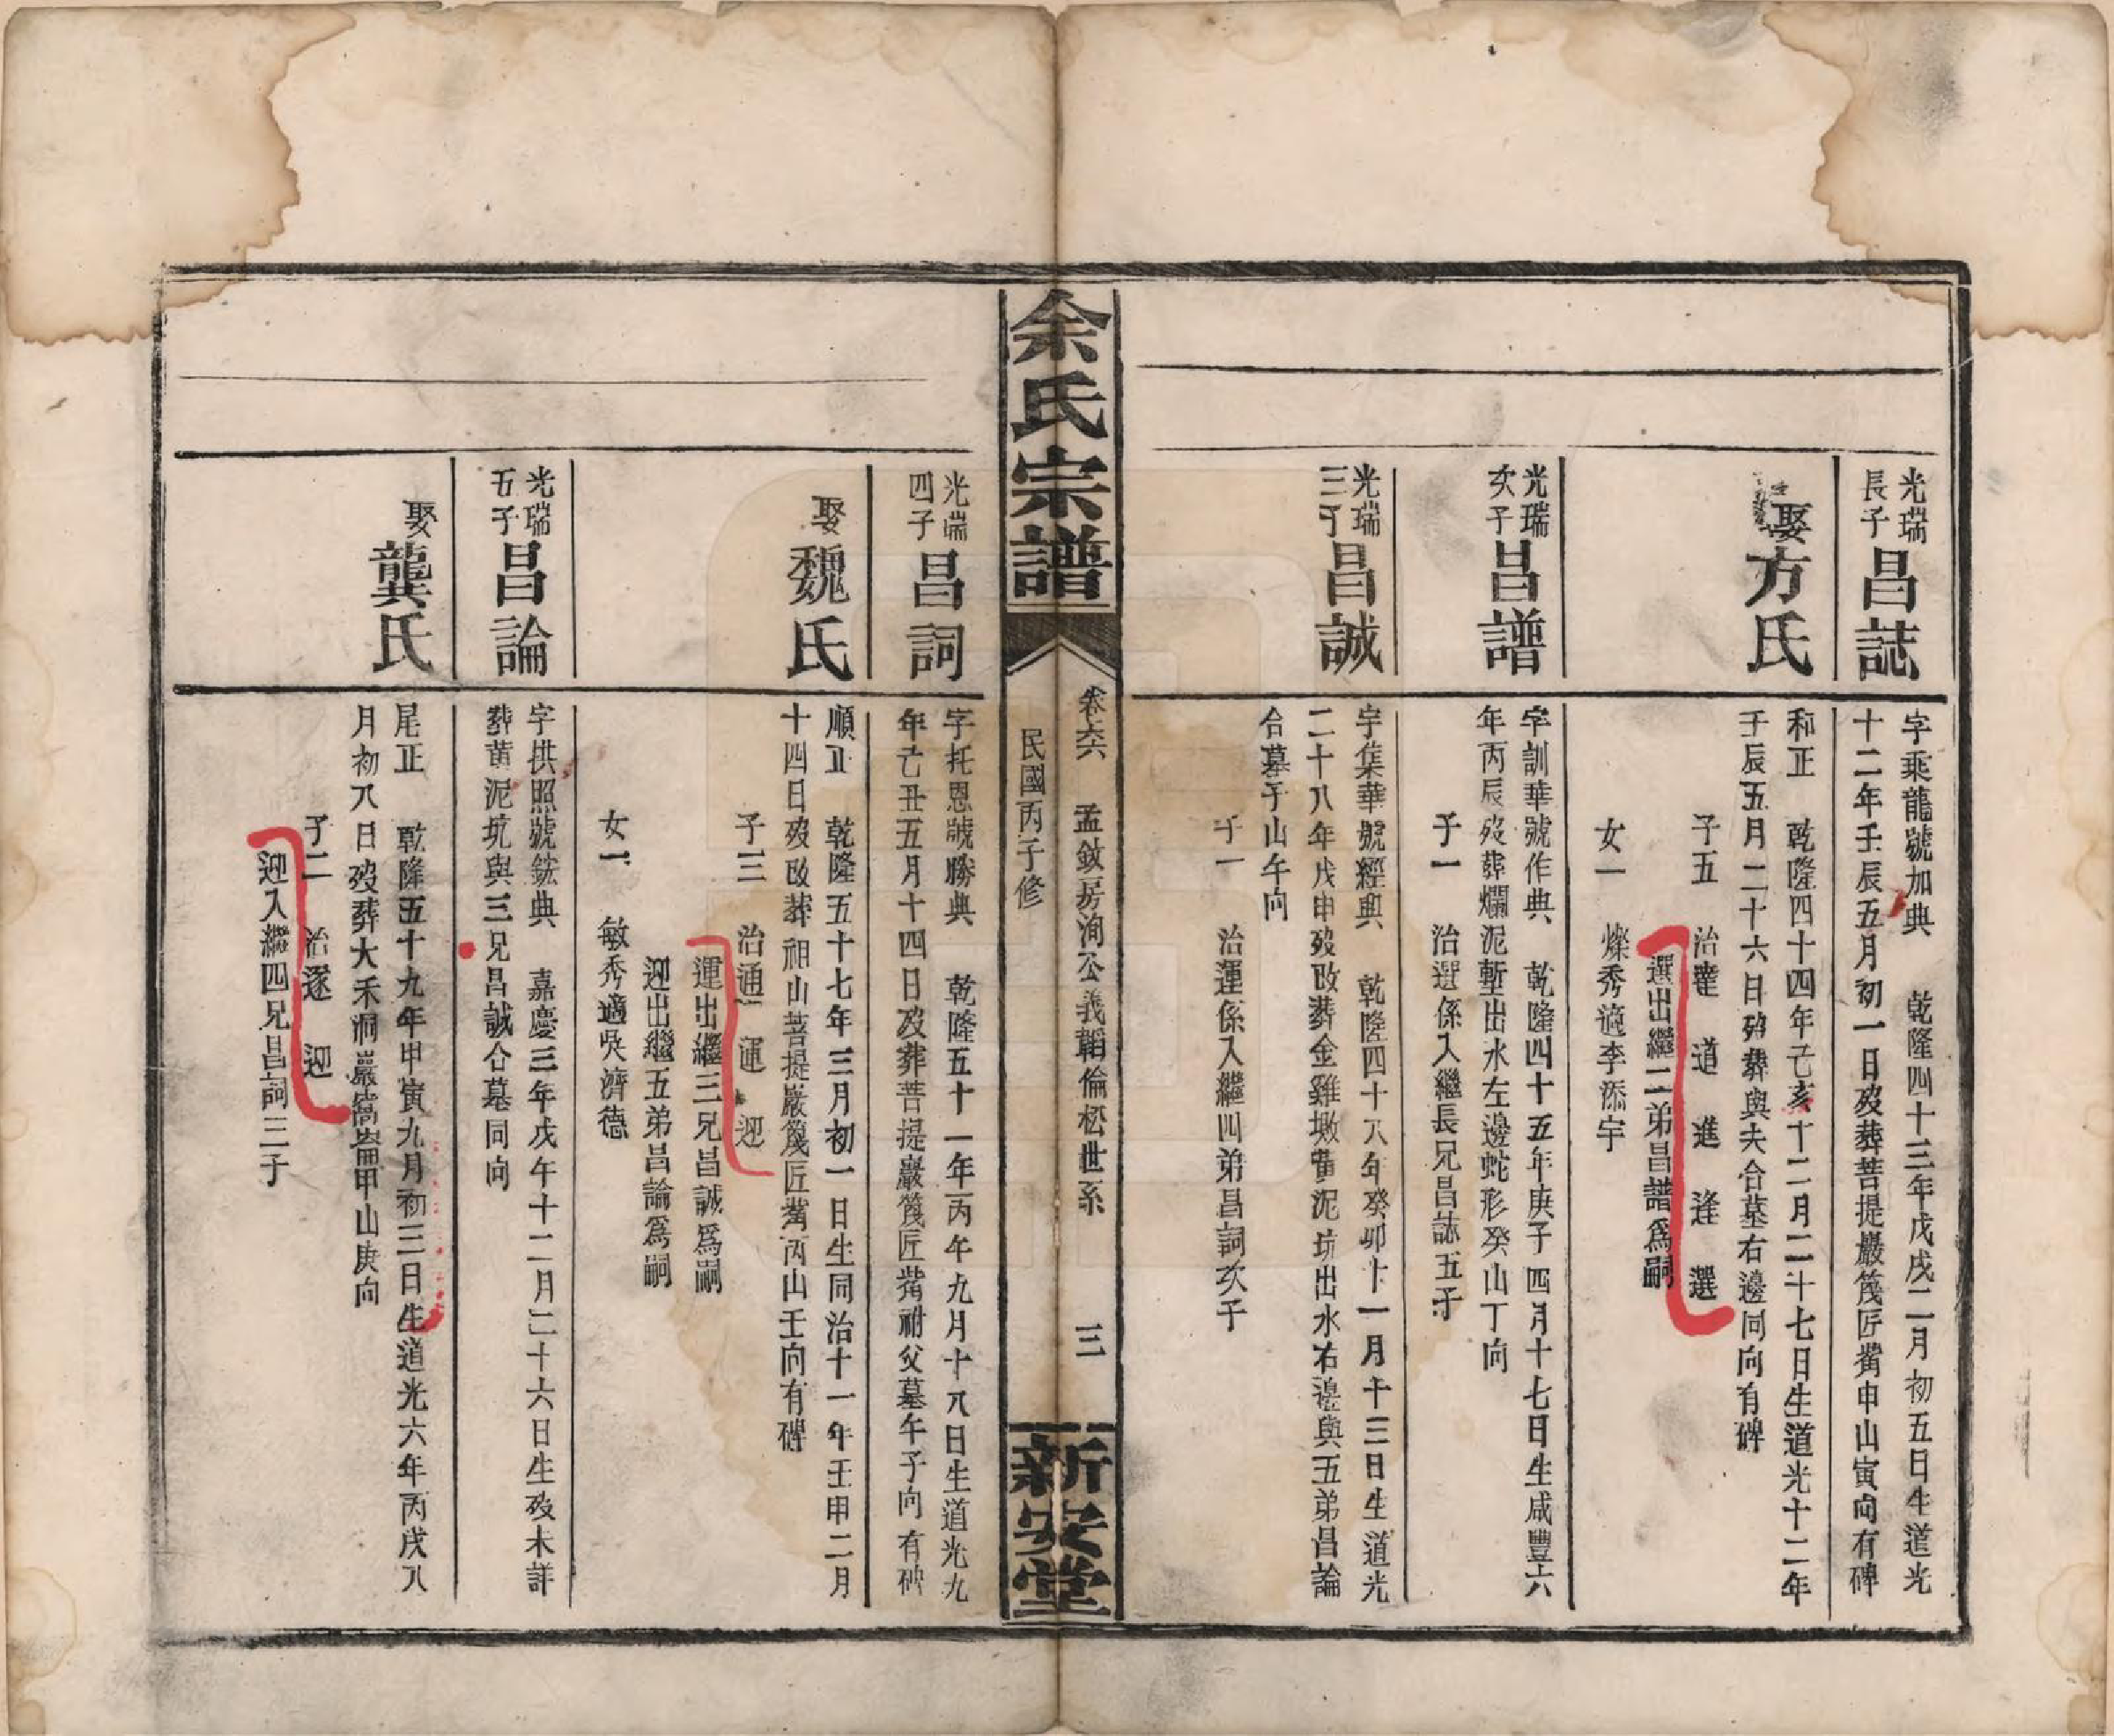 光瑞
長子
昌誌
字乘龍號加典 乾隆四十三年戊戌二月初五日生道光
十二年壬辰五月初一日歿葬菩提巖篾匠觜申山寅向有碑
娶方氏
和正 乾隆四十四年乙亥十二月二十七日生道光十二年
壬辰五月二十六日歿葬與夫合墓右邊同向有碑
子五 治達 道 進 逢 選
選出繼二弟昌譜爲嗣
女一 燦秀適李添宇
光瑞
次子
昌譜
字訓華號作典 乾隆四十五年庚子四月十七日生咸豐六
年丙辰歿葬爛泥塹出水左邊蛇形癸山丁向
子一 治選係入繼長兄昌誌五子
光瑞
三子
昌誠
字集華號經典 乾隆四十八年癸卯十一月十三日生道光
二十八年戊申歿改葬金雞墩黃泥坑出水右邊與五弟昌論
合墓子山午向
子一 治運係入繼四弟昌詞次子
余氏宗譜
卷六 孟欽房洵公義韜倫松世系 三
民國丙子修
新安堂
光瑞
四子
昌詞
字托恩號勝典 乾隆五十一年丙午九月十八日生道光九
年己丑五月十四日歿葬菩提巖篾匠觜祔父墓午子向有碑
娶魏氏
順正 乾隆五十七年三月初一日生同治十一年壬申二月
十四日歿改葬祖山菩提巖篾匠觜丙山壬向有碑
子三 治通 運 迎
運出繼三兄昌誠爲嗣
迎出繼五弟昌論爲嗣
女一 敏秀適吳濟德
光瑞
五子
昌論
字拱照號鋐典 嘉慶三年戊午十二月二十六日生歿未詳
葬黃泥坑與三兄昌誠合墓同向
娶龔氏
尾正 乾隆五十九年甲寅九月初三日生道光六年丙戌八
月初八日歿葬大禾洞巖甲山庚向
子二 治逐 迎
迎入繼四兄昌詞三子